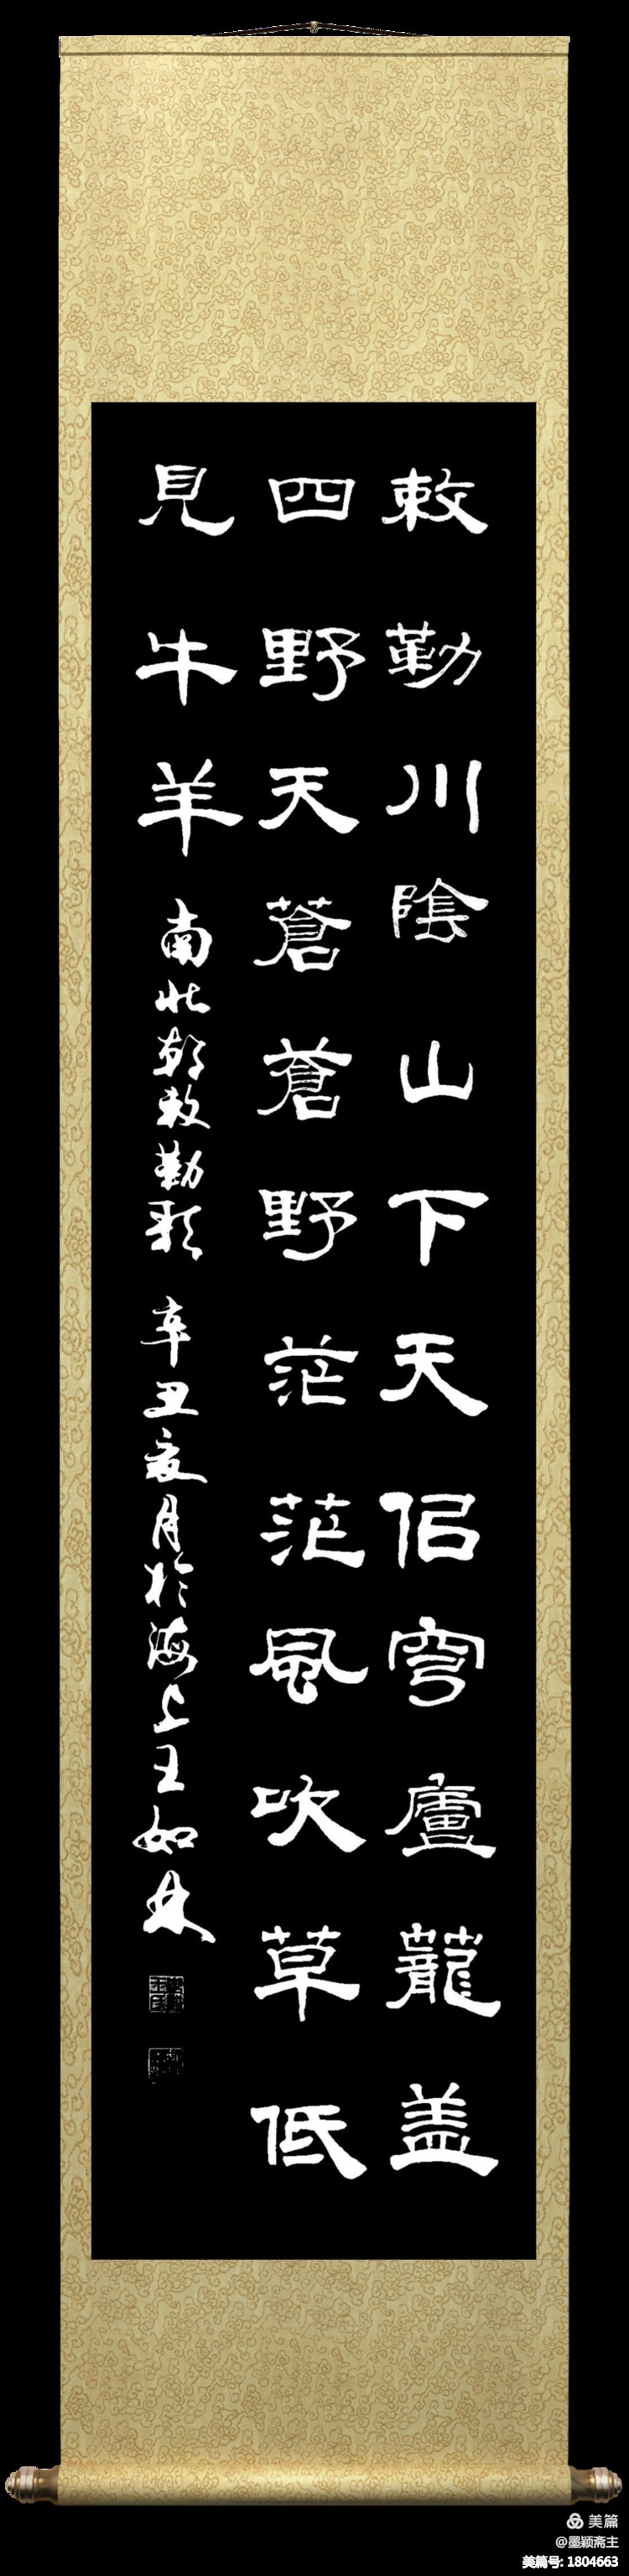 敕勒川陰山下天侣穹廬蘢盖
四野天蒼蒼野茫茫風吹草低
見牛羊 南北朝敕勒歌 辛丑夏月於海上王如林
美篇
@墨颖斋主
美篇号: 1804663